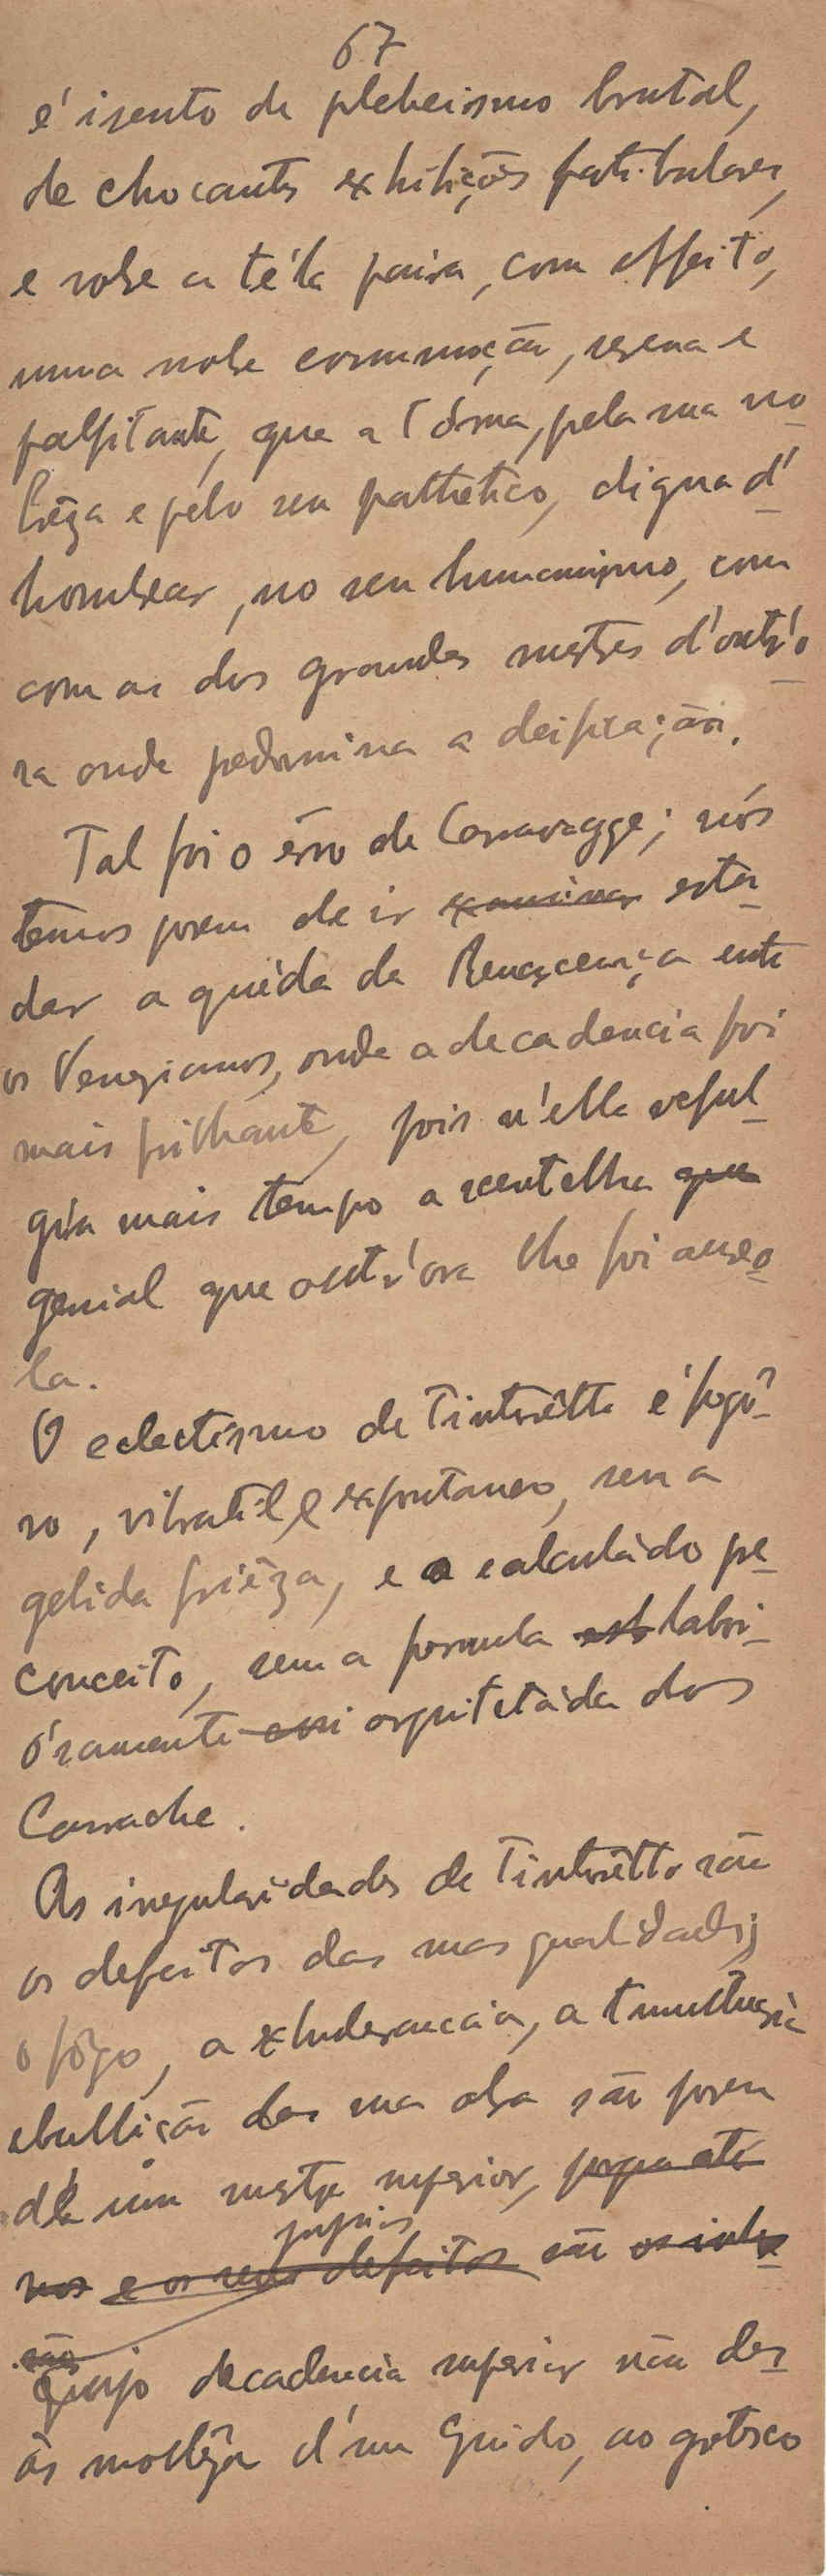 67
é isento de plebeismo brutal,
de chocantes exhibições patibulares,
e sobre a téla paira, com effeito,
uma nobre commoção, serena e
palpitante, que a tórna, pela sua no
brêza e pelo seu pathetico, digna d'
hombrear, no seu humanismo, com
com as dos grandes mestres d'outr'o
ra onde pedomina a deificação.
Tal foi o êrro de Carravagge; nós
temos porem de ir examinar estu
dar a quéda da Renascença entre
os Venezianos, onde a decadencia foi
mais brilhante, pois n'ella reful
gia mais tempo a scentelha que
genial que outr'ora lhe foi aureo
la.
O eclectismo de Tintorêtto é fogô
so, vibratil, e expontaneo, sem a
gelida friêza, e o calculádo pre
conceito, sem a formula labori
ósamente arquitetáda dos
Carrache.
As irregularidades de Tintorêtto são
os defeitos das suas qualidades;
o fôgo, a exhuberancia, a tumultuaria
ebullição da sua obra são porem
de um mestre superior,
proprios
e os seus defeitos são
são
Cujo decadencia superior não des
ás mollêza d'um Guido, ao grotesco